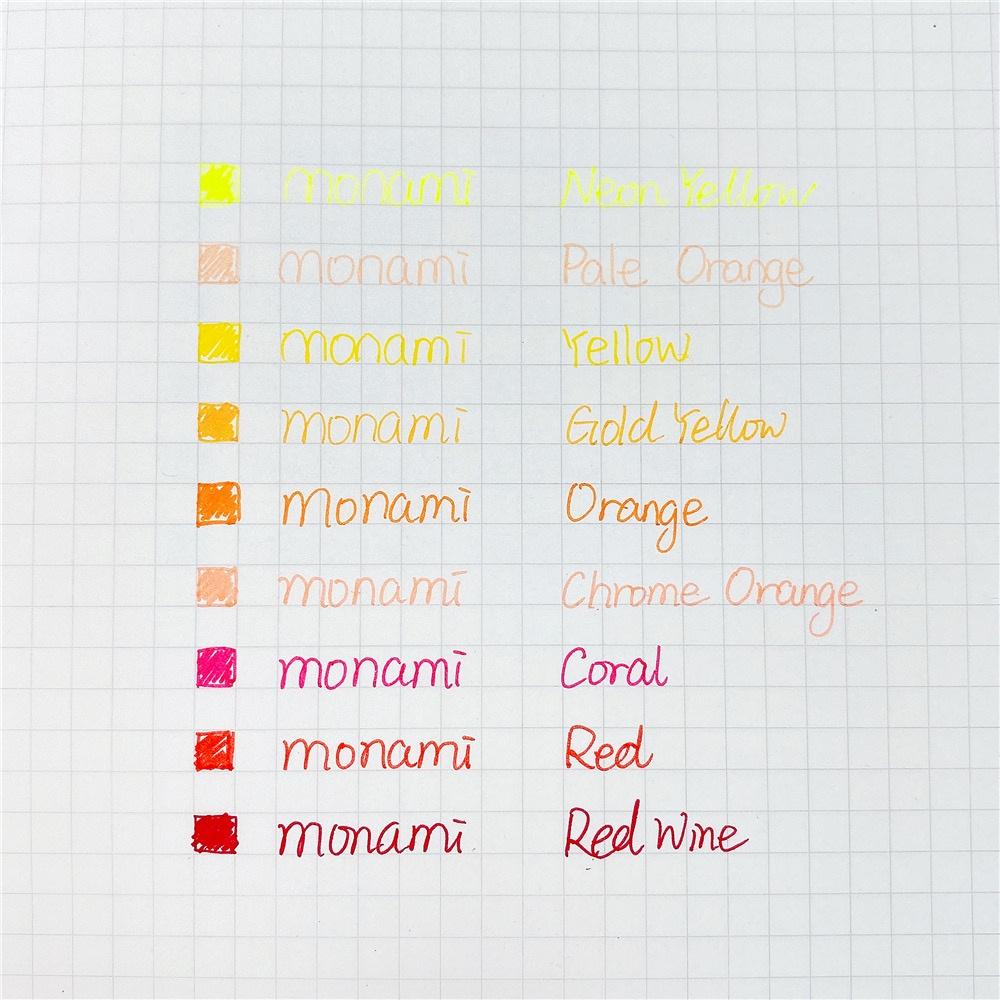 monami Neon Yellow
monami Pale Orange
monami Yellow
monami Gold Yellow
monami Orange
monami Chrome Orange
monami Coral
monami Red
monami Red Wine